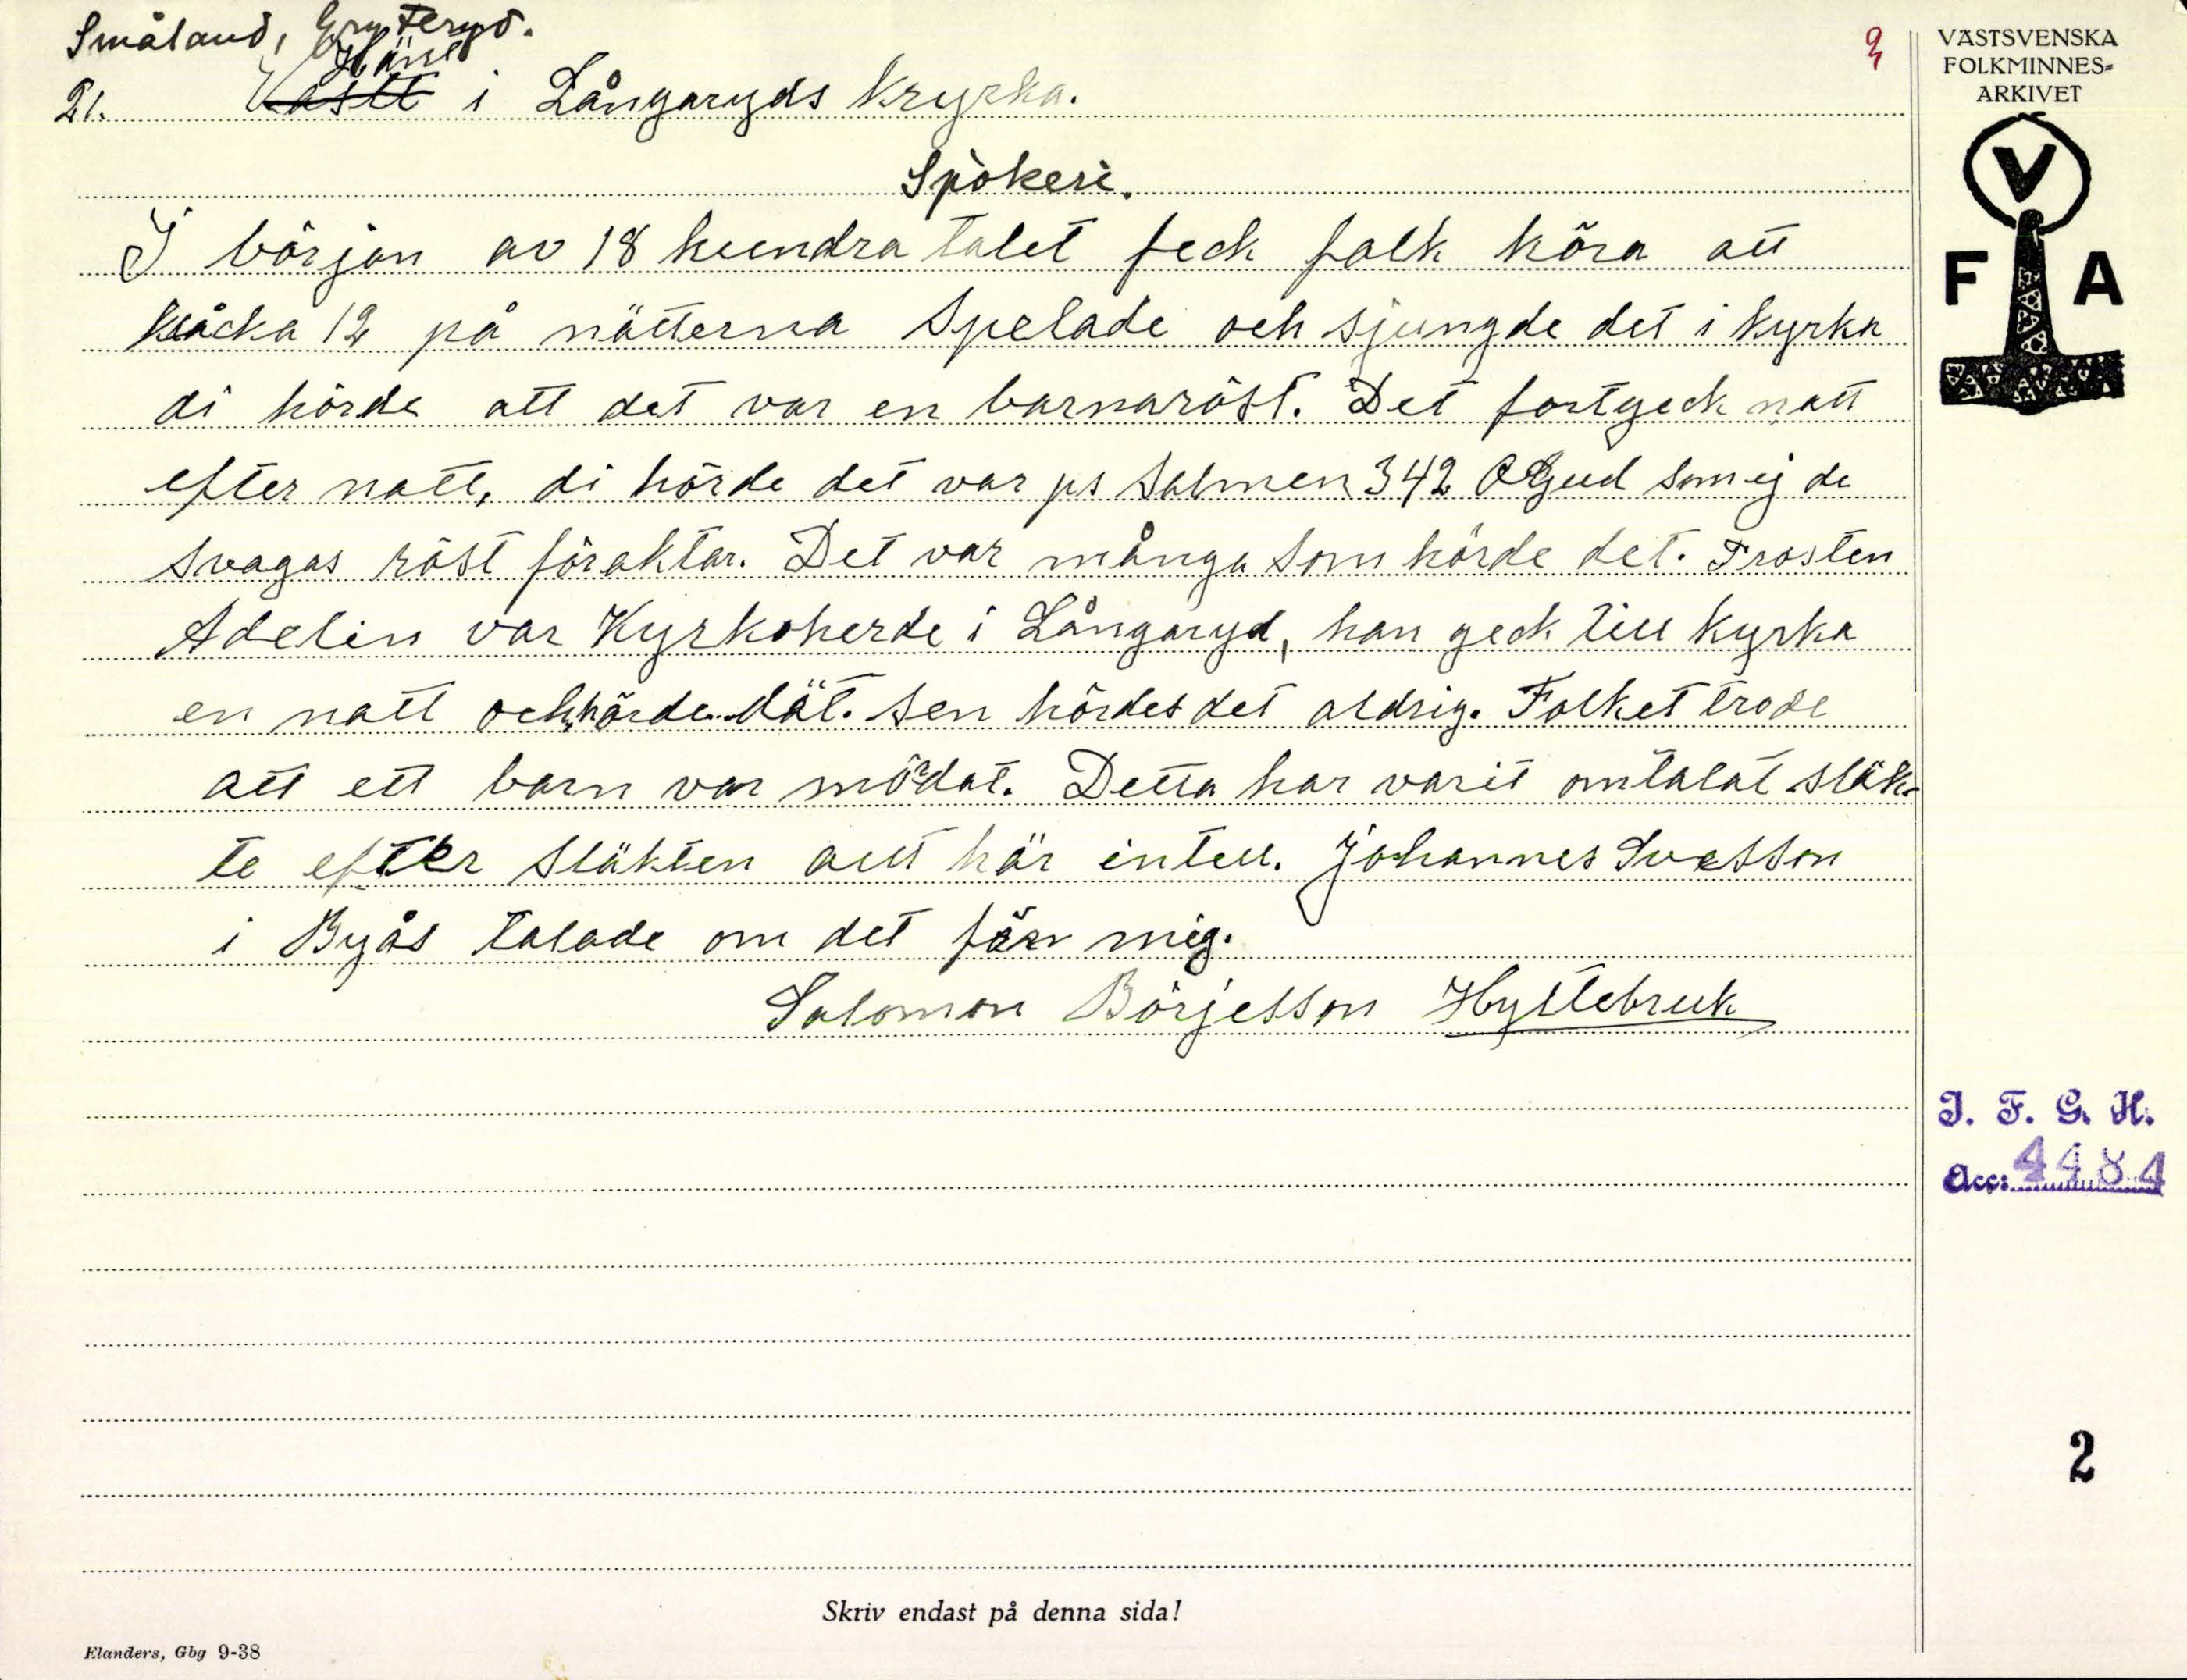 Småland, Gryteryd.
9
21. Hänt i Långaryds Kryrka.
Spökeri.
I början av 18 hundra talet feck folk höra att
klåcka 12 på nätterna Spelade och sjungde det i kyrka
di hörde att det var en barnaröst. Det fortgeck natt
efter natt, di hörde det var ps Salmen 342 O Gud som ej de
svagas röst föraktar. Det var många som hörde det. Prosten
Adelin var Kyrkoherde i Långaryd, han geck till kyrka
en natt och hörde dät. sen hördes det aldrig. Folket trode
att ett barn var mördat. Detta har varit omtalat släk-
te efter släkten allt här intell. Johannes Svesson
i Byås talade om det för mig.
Salomon Börjesson Hyltebruk
VÄSTSVENSKA
FOLKMINNES-
ARKIVET
V
F A
I. F. G. H.
Acc: 4484
2
Skriv endast på denna sida!
Elanders, Gbg 9-38